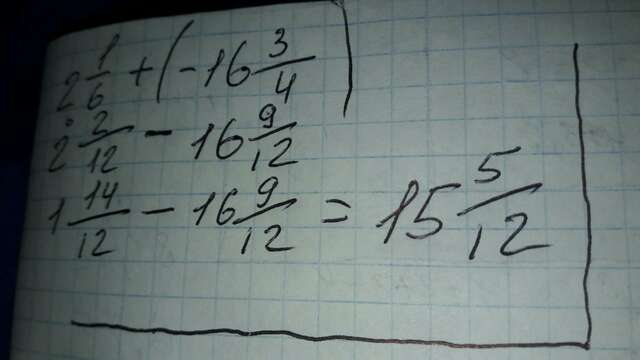 2 1/6 + (-16 3/4)
2 2/12 - 16 9/12
1 14/12 - 16 9/12 = 15 5/12